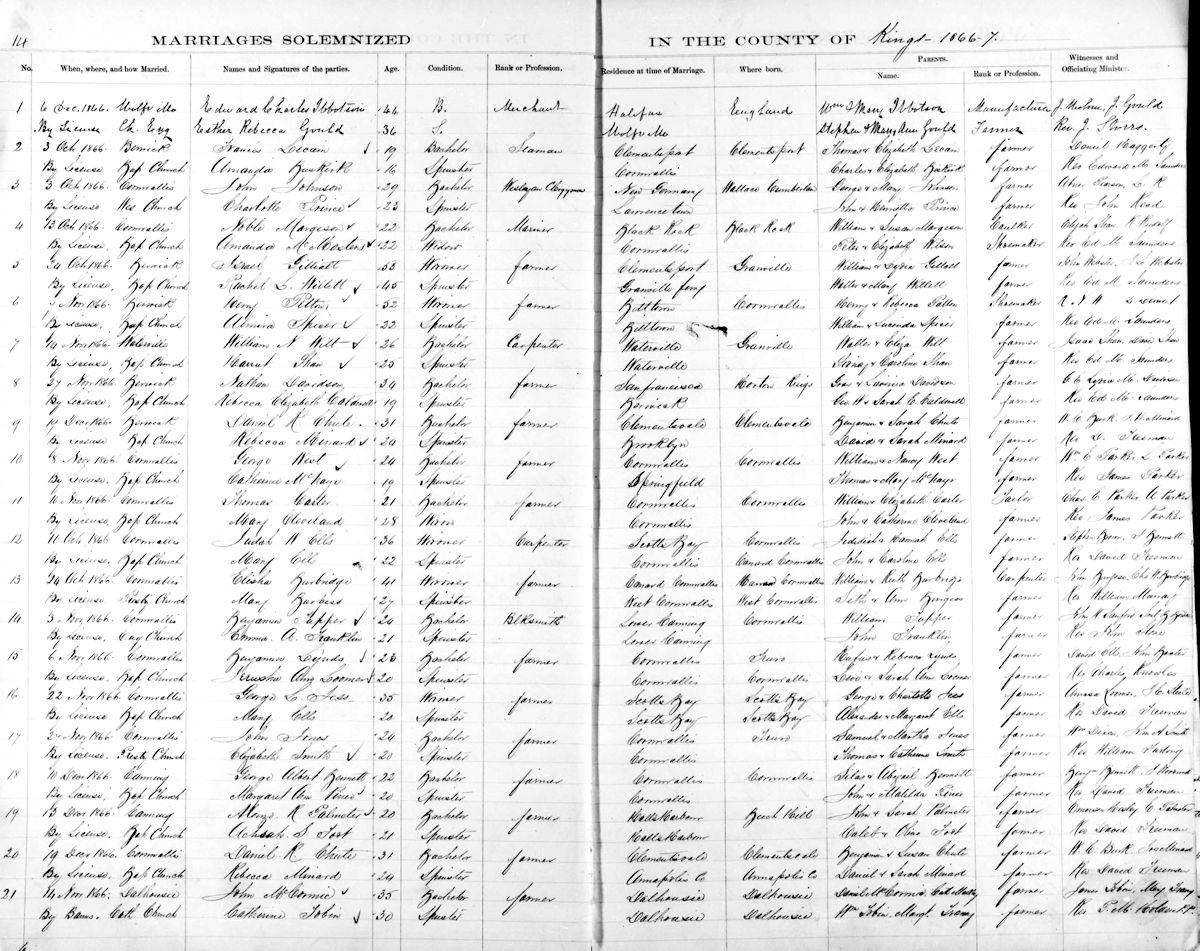 14 MARRIAGES SOLEMNIZED IN THE COUNTY OF Kings - 1866-7.
No. When, where, and how Married. Names and Signatures of the parties. Age. Condition. Rank or Profession. Residence at time of Marriage. Where born. PARENTS. Name. Rank or Profession. Witnesses and Officiating Minister.
1 6 Dec. 1866. Wolfville Edward Charles Ibbotson 44 B. Merchant Halifax England Wm & Mary Ibbotson Manufacturer Gould
By License Ch. Eng Esther Rebecca Gould 36 S. Wolfville Stephen & Mary Ann Gould Farmer Rev. J. Storrs.
2 3 Oct 1866. Berwick Francis Lecain 19 Bachelor Seaman Clementsport Clementsport Thomas & Elizabeth Lecain farmer Daniel Haggerty
By License, Bap Church Amanda Buskirk 16 Spinster Cornwallis Charles & Elizabeth Buskirk farmer Rev Edward M. Saunders
3 3 Oct 1866. Cornwallis John Johnson 29 Bachelor Wesleyan Clergyman New Germany Wallace Cumberland George & Mary Johnson farmer
By License, Wes Church Charlotte Prince 23 Spinster Lawrencetown John & Henrietta Prince farmer Rev John Read
4 13 Oct 1866. Cornwallis Noble Margeson 22 Bachelor Mariner Black Rock Black Rock William & Susan Margeson Caulker
By License, Bap Church Amanda McMasters 22 Widow Cornwallis Peter & Elizabeth Wilson Shoemaker Rev Ed M. Saunders
5 24 Oct 1866. Berwick Israel Gilliatt 53 Widower farmer Clementsport Granville William & Lydia Gilliatt farmer John Webster
By License, Bap Church Rachel L. Willett 45 Spinster Granville ferry Walter & Mary Willett farmer Rev Ed M. Saunders
6 Nov 1866. Berwick Henry 52 Widower farmer Billtown Cornwallis Henry & Rebecca Shoemaker
By License, Bap Church Almira Spicer 22 Spinster Billtown William & Lucinda Spicer farmer Rev Ed. M. Saunders
7 14 Nov 1866. Waterville William N. Wilt 26 Bachelor Carpenter Waterville Granville Walter & Eliza Wilt farmer
By License, Bap Church Harriet Shaw 25 Spinster Waterville & Caroline Shaw farmer Rev Ed M. Saunders
8 27 Nov 1866 Berwick Nathan Davidson 34 Bachelor farmer San francisco Horton Kings & Lavinia Davidson farmer
By License, Bap Church Rebecca Elizabeth Caldwell 19 Spinster Berwick Geo W & Sarah E. Caldwell farmer Rev Ed M. Saunders
9 19 Decr 1866. Berwick Daniel R. Chute 31 Bachelor farmer Clementsvale Clementsvale Benjamin & Sarah Chute farmer
By License Bap Church Rebecca Menard 24 Spinster Brooklyn David & Sarah Menard farmer Rev D. Freeman
10 8 Nov 1866. Cornwallis George West 24 Bachelor farmer Cornwallis Cornwallis William & Nancy West farmer Wm C Parker
By License, Bap Church Catherine McKaye 19 Spinster Springfield Thomas & Mary McKaye farmer Rev James Parker
11 10 Nov 1866. Cornwallis Thomas Carter 21 Bachelor farmer Cornwallis Cornwallis William & Elizabeth Carter Tailor Chas. C Parker A Parker
By License, Bap Church Mary Cleveland 28 Widow Cornwallis John & Catherine Cleveland farmer Rev James Parker
12 11 Oct 1866 Cornwallis Judah W Ells 36 Widower Carpenter Scotts Bay Cornwallis Jedidiah & Hannah Ells farmer
By License, Bap Church Mary Ells 22 Spinster Cornwallis Canard Cornwallis John & Caroline Ells farmer Rev David Freeman
13 24 Oct 1866 Cornwallis Elisha Burbidge 41 Widower farmer Canard Cornwallis Canard Cornwallis William & Ruth Burbidge Carpenter
By License Presby Church Mary Burgess 27 Spinster West Cornwallis West Cornwallis Seth & Ann Burgess farmer Rev William Murray
14 3 Nov 1866. Cornwallis Benjamin Tupper 24 Bachelor Blksmith Lower Canning Cornwallis William Tupper farmer
By License, Eng Church Emma A. Franklin 21 Spinster Lower Canning John Franklin farmer Rev John Stone
15 6 Nov 1866. Cornwallis Benjamin Lynds 23 Bachelor farmer Cornwallis Truro Rufus & Rebecca Lynds farmer David Ells
By License, Bap Church Jerusha Ann Loomer 20 Spinster Cornwallis Cornwallis & Sarah Ann Loomer farmer Rev Charles Knowles
16 22 Nov 1866 Cornwallis George L. Jess 35 Widower farmer Scotts Bay Scotts Bay George & Charlotte Jess farmer
By License, Bap Church Mary Ells 20 Spinster Scotts Bay Scotts Bay Alexander & Margaret Ells farmer Rev David Freeman
17 24 Nov 1866 Cornwallis John Jones 24 Bachelor farmer Cornwallis Truro Samuel & Martha Jones farmer
By License, Presby Church Elizabeth Smith 20 Spinster Cornwallis Thomas & Catherine Smith farmer Rev William
18 10 Decr 1866. Canning George Albert Bennett 22 Bachelor farmer Cornwallis Cornwallis Silas & Abigail Bennett farmer
By License, Bap Church Margaret Ann Pineo 20 Spinster Cornwallis John & Matilda Pineo farmer Rev David Freeman
19 13 Decr 1866. Canning R Palmeter 20 Bachelor farmer Halls Harbour Beech Hill John & Sarah Palmeter farmer
By License, Bap Church Achsah S Fort 21 Spinster Halls Harbour Caleb & Olive Fort farmer Rev David Freeman
20 19 Decr 1866. Cornwallis Daniel R. Chute 31 Bachelor farmer Clementsvale Clementsvale Benjamin & Susan Chute farmer
By License, Bap Church Rebecca Menard 24 Spinster Annapolis C Annapolis C Daniel & Sarah Menard farmer Rev David Freeman
21 14 Nov 1866. Dalhousie John McCormic 35 Bachelor farmer Dalhousie Dalhousie farmer James Tobin
By Banns, Cath Church Catherine Tobin 30 Spinster Dalhousie Dalhousie Wm Tobin, Margt. farmer Rev